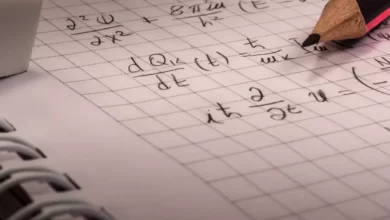 ∂²Ψ/∂x² + 8πm/h² (E -
dQ_k/dt (t) = ħ/m_k
iħ ∂/∂t u = (